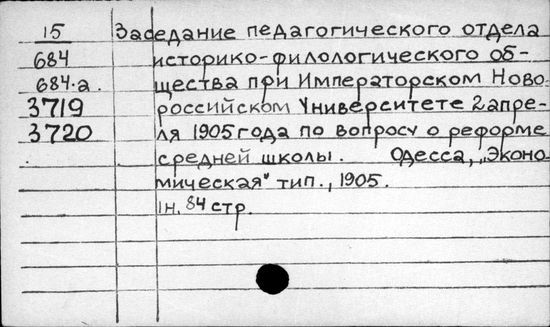 15 Заседание педагогического отдела
684 историко-филологического об-
684.а. щества при Императорском Ново-
3719 российском Университете 2 апре-
3720 ля 1905 года по вопросу о реформе
средней школы. Одесса, „Эконо-
мическая" тип., 1905.
Iн. 84 стр.